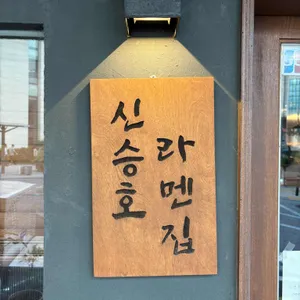 신승호
라멘집